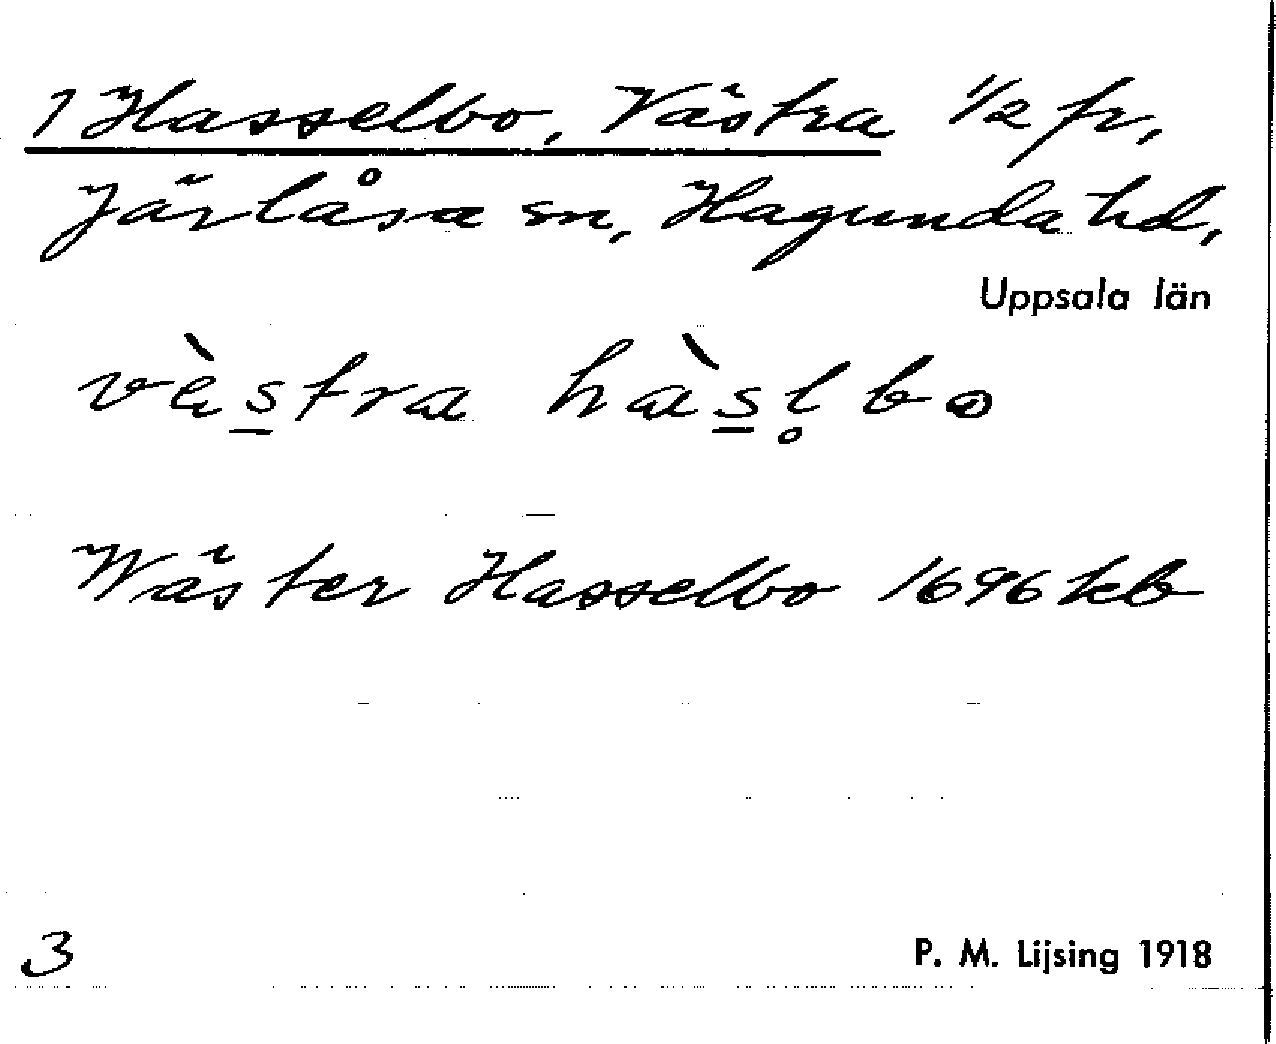 1 Hasselbo, Västra 1/2 fr,
Järlåsa sn, Hagunda hd,
Uppsala län
vèstra hàsl̥bo
Wäster Hasselbo 1696 kb
3
P. M. Lijsing 1918